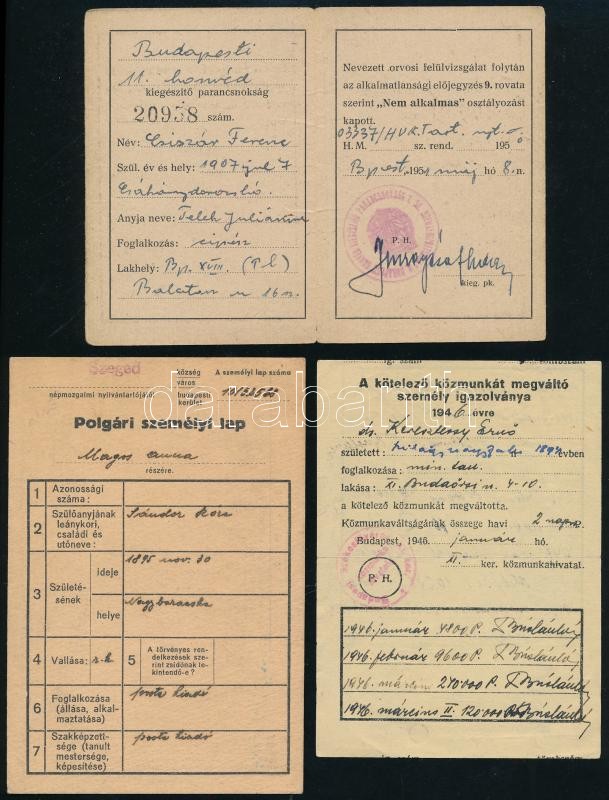 Budapesti
11. honvéd
kiegészítő parancsnokság
20938 szám.
Név: Csiszár Ferenc
Szül. év és hely: 1907 jul 7
Anyja neve: Juliánna
Foglalkozás: cipész
Lakhely: Bp. XVIII. (Pl)
Balaton u 16 sz.
Nevezett orvosi felülvizsgálat folytán
az alkalmatlansági előjegyzés 9. rovata
szerint „Nem alkalmas" osztályozást
kapott.
H. M. sz. rend. 195
Bpest, 1951 máj hó 8.n.
P. H.
kieg. pk.
Szeged
népmozgalmi nyilvántartójától
község
város
budapesti
kerület
A személyi lap száma
Polgári személyi lap
Magos Anna
részére.
1 Azonossági
száma:
2 Szülőanyjának
leánykori,
családi és
utóneve:
Sándor
3 Születé-
sének
ideje
1895 nov. 30
helye
Nagybaracska
4 Vallása: r. k.
5 A törvényes ren-
delkezések sze-
rint zsidónak te-
kintendő-e?
6 Foglalkozása
(állása, alkal-
maztatása)
posta kiadó
7 Szakképzett-
sége (tanult
mestersége,
képesítése)
posta kiadó
A kötelező közmunkát megváltó
személy igazolványa
1946 évre
dr. Keresztessy Ernő
született: 1894 évben
foglalkozása: min. tan.
lakása: XI. Budaörsi u. 4-10.
a kötelező közmunkát megváltotta.
Közmunkaváltságának összege havi 2 napsz.
Budapest, 1946. január hó.
XI. ker. közmunkahivatal.
P. H.
1946. január 4800 P.
1946. február 9600 P.
1946. március 240000 P.
1946. március II. 120.000
darabanth